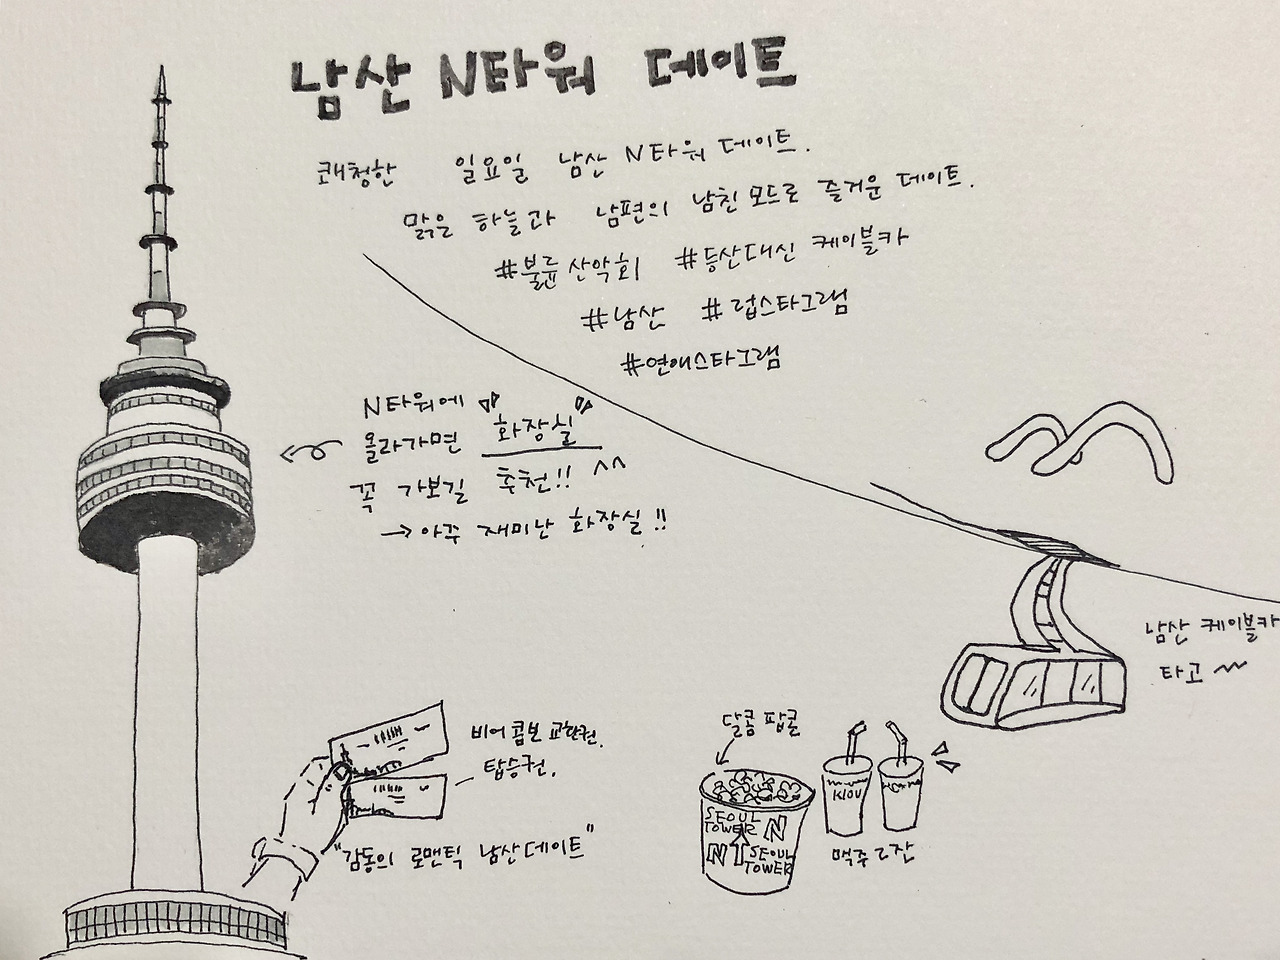 남산 N타워 데이트
쾌청한 일요일 남산 N타워 데이트.
맑은 하늘과 남편의 남친 모드로 즐거운 데이트.
#불륜산악회 #등산대신 케이블카
#남산 #럽스타그램
#연애스타그램
N타워에 "화장실"
올라가면
꼭 가보길 추천!! ^^
→ 아주 재미난 화장실!!
남산 케이블카
타고 ~
비어콤보 교환권.
탑승권.
"감동의 로맨틱 남산데이트"
달콤 팝콘
SEOUL
TOWER N
NT SEOUL
TOWER
맥주 2잔